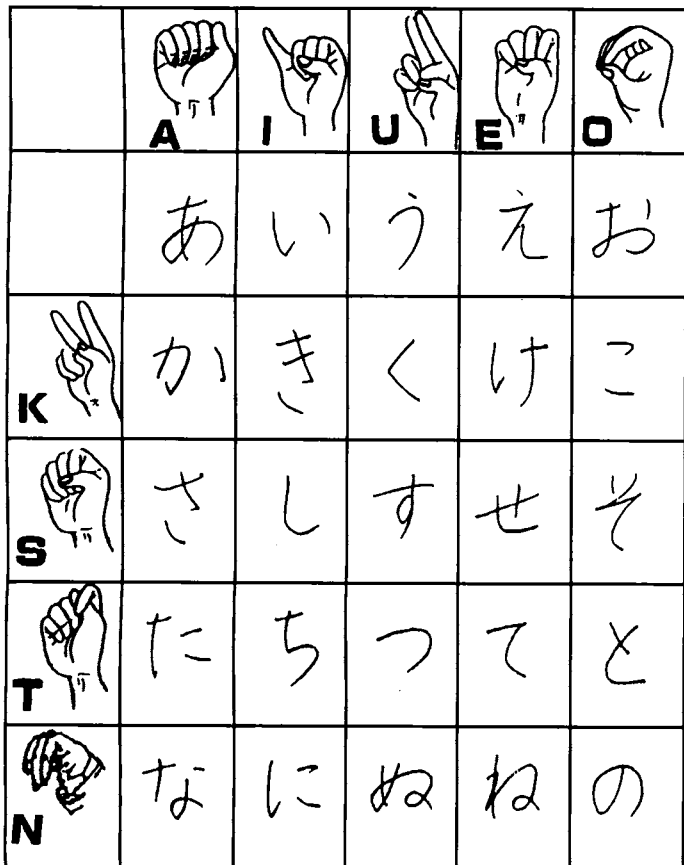 A I U E O
あ い う え お
K か き く け こ
S さ し す せ そ
T た ち つ て と
N な に ぬ ね の